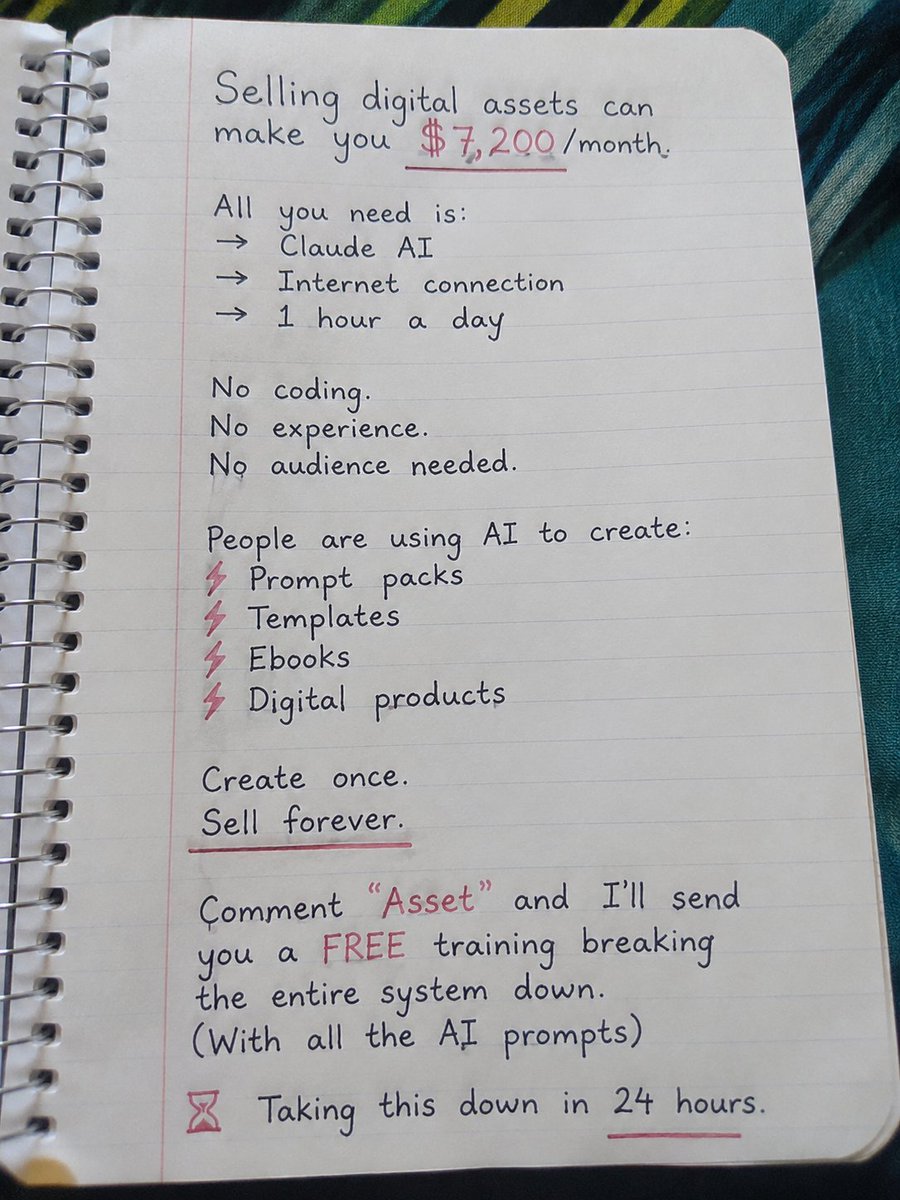 Selling digital assets can
make you $7,200/month.
All you need is:
→ Claude AI
→ Internet connection
→ 1 hour a day
No coding.
No experience.
No audience needed.
People are using AI to create:
⚡ Prompt packs
⚡ Templates
⚡ Ebooks
⚡ Digital products
Create once.
Sell forever.
Comment “Asset” and I'll send
you a FREE training breaking
the entire system down.
(With all the AI prompts)
⏳ Taking this down in 24 hours.